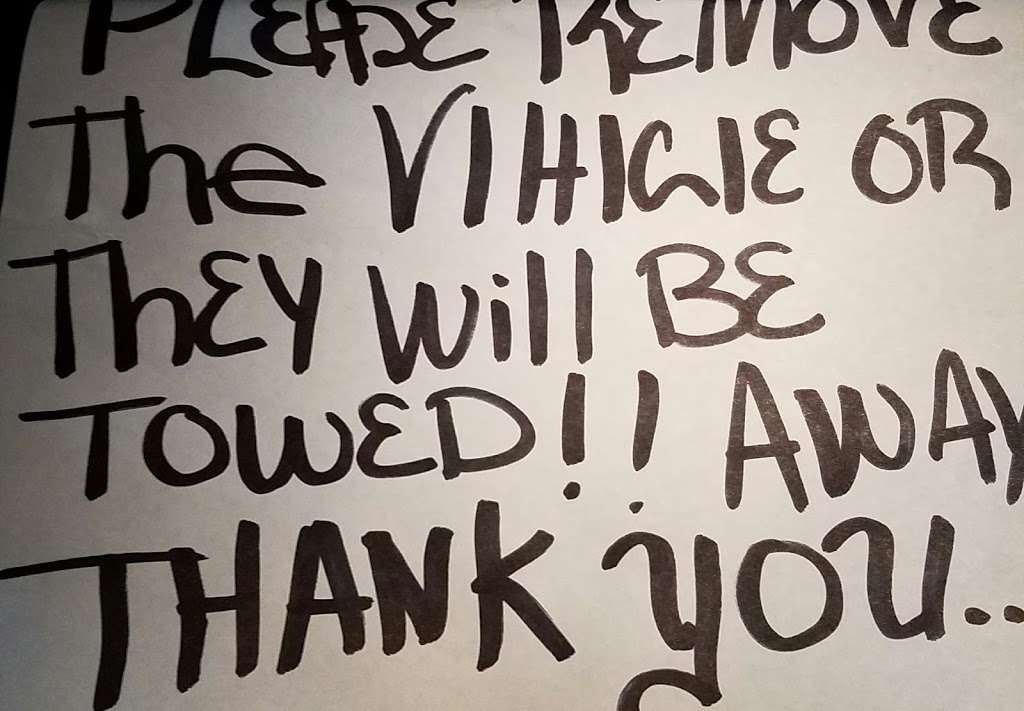 PLEASE REMOVE
The VIHICIE OR
ThEY Will BE
TOWED!! AWAY
THANK YOU..